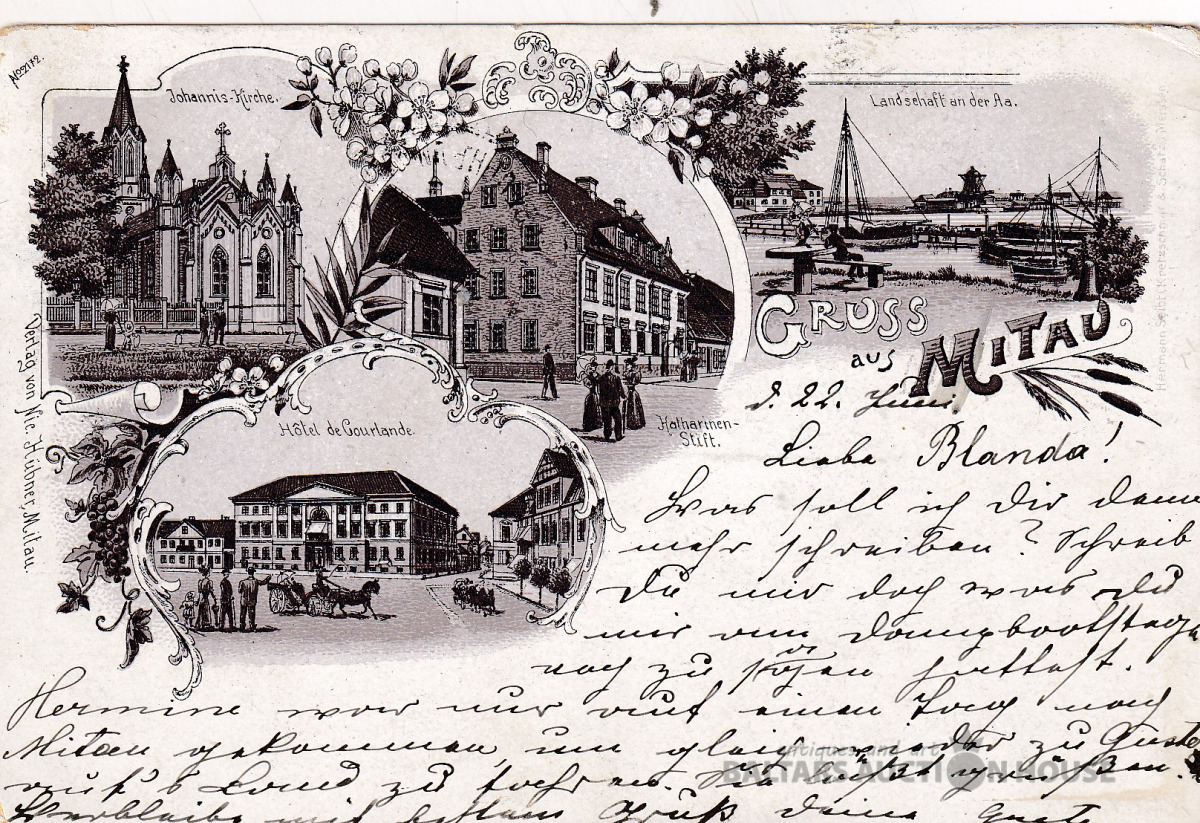 No 2172.
Johannis-Kirche.
Landschaft an der Aa.
GRUSS
aus
MITAU
Katharinen-
Stift.
Hôtel de Courlande.
Verlag von Nic. Hübner, Mitau.
d. 22. Juni.
Liebe Blanda!
Was soll ich Dir denn
mehr schreiben? Schreib
Du mir doch was du
mir am Dampbootstege
noch zu sagen hattest.
Hermine war nur auf einen Tag nach
Mitau gekommen, um gleich wieder zu
auf's Land zu fahren. Sie läßt grüßen.
Verbleibe mit bestem Gruß deine
antiques and art
BALTARS AUCTION HOUSE